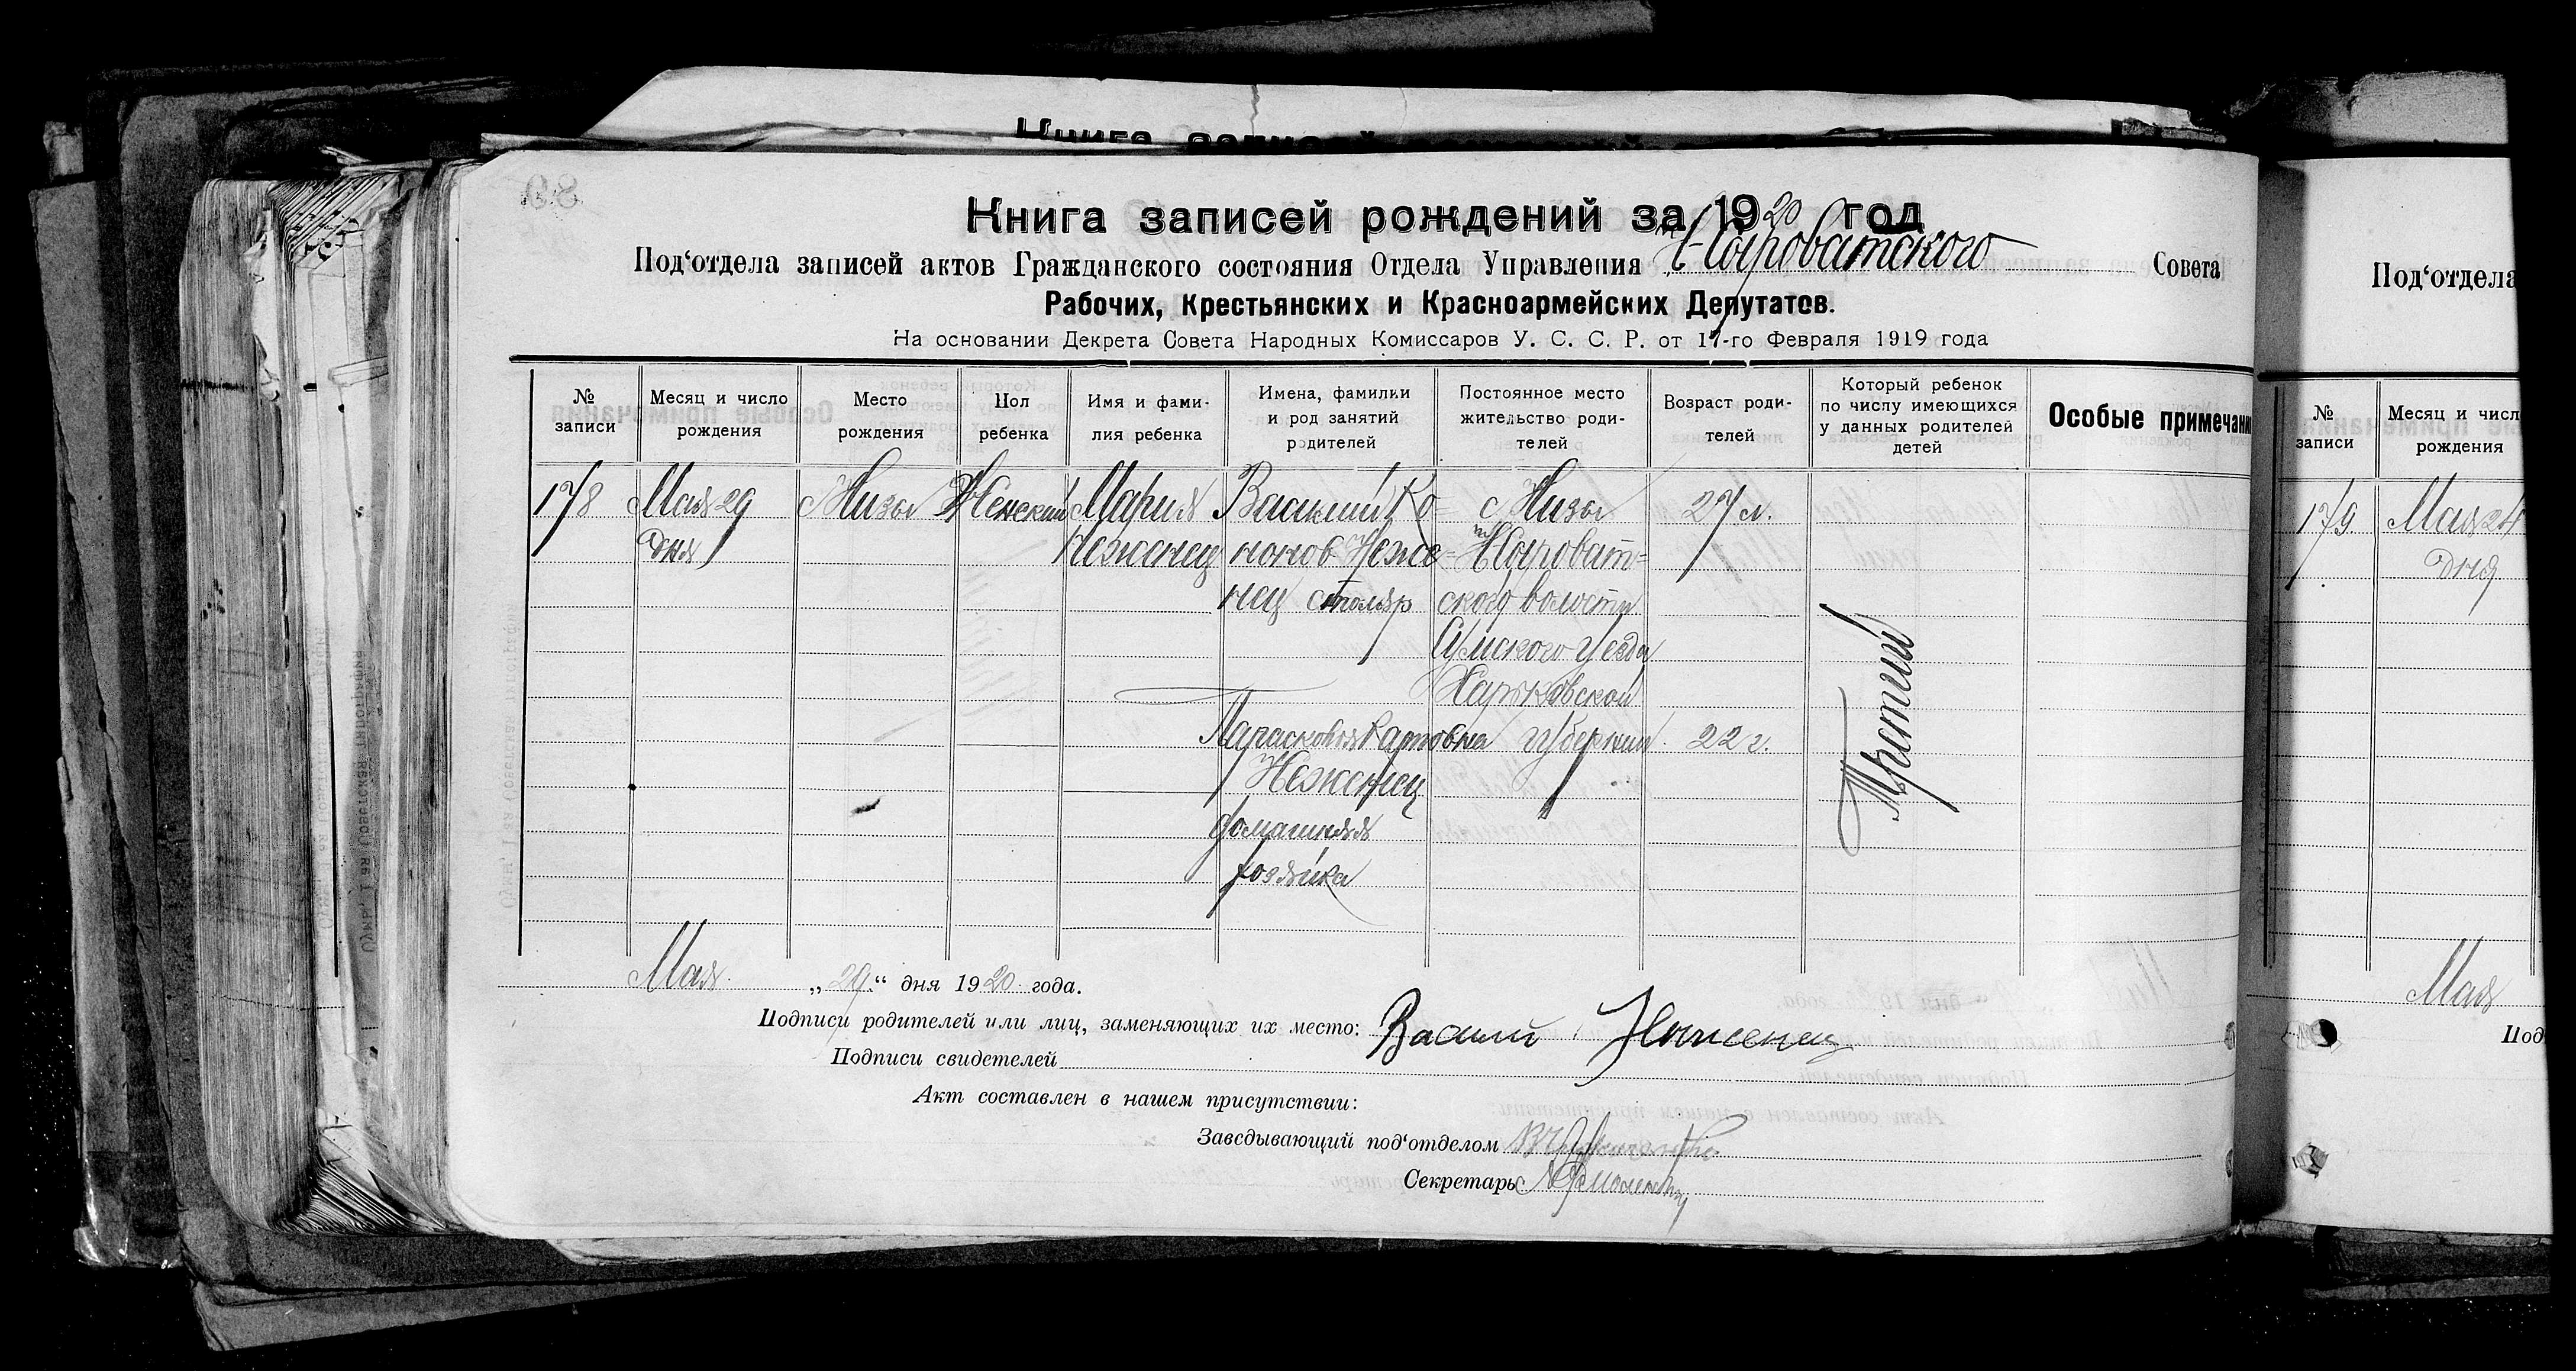 Книга записей рождений за 1920 год
Под‘отдела записей актов Гражданского состояния Отдела Управления Н-Сыроватского Совета
Рабочих, Крестьянских и Красноармейских Депутатов.
На основании Декрета Совета Народных Комиссаров У. С. С. Р. от 17-го Февраля 1919 года
№ записи
Месяц и число рождения
Место рождения
Пол ребенка
Имя и фамилия ребенка
Имена, фамилии и род занятий родителей
Постоянное место жительство родителей
Возраст родителей
Который ребенок по числу имеющихся у данных родителей детей
Особые примечани
178
Мая 29
дня
с Низы
Женский
Мария
Неженец
Василий Ко-
нонов Неже-
нец столяр
Парасковия Карповна
Неженец
домашняя
хозяйка
с Низы
Н Сыроват-
ской волости
Сумского уезда
Харьковской
губернии
27 л.
22 г.
Третий
Мая „29“ дня 1920 года.
Подписи родителей или лиц, заменяющих их место: Василий Неженец
Подписи свидетелей
Акт составлен в нашем присутствии:
Заведывающий под‘отделом
Секретарь
Под‘отдела
№ записи
Месяц и числ
рождения
179
Мая 24
дня
Мая
Под